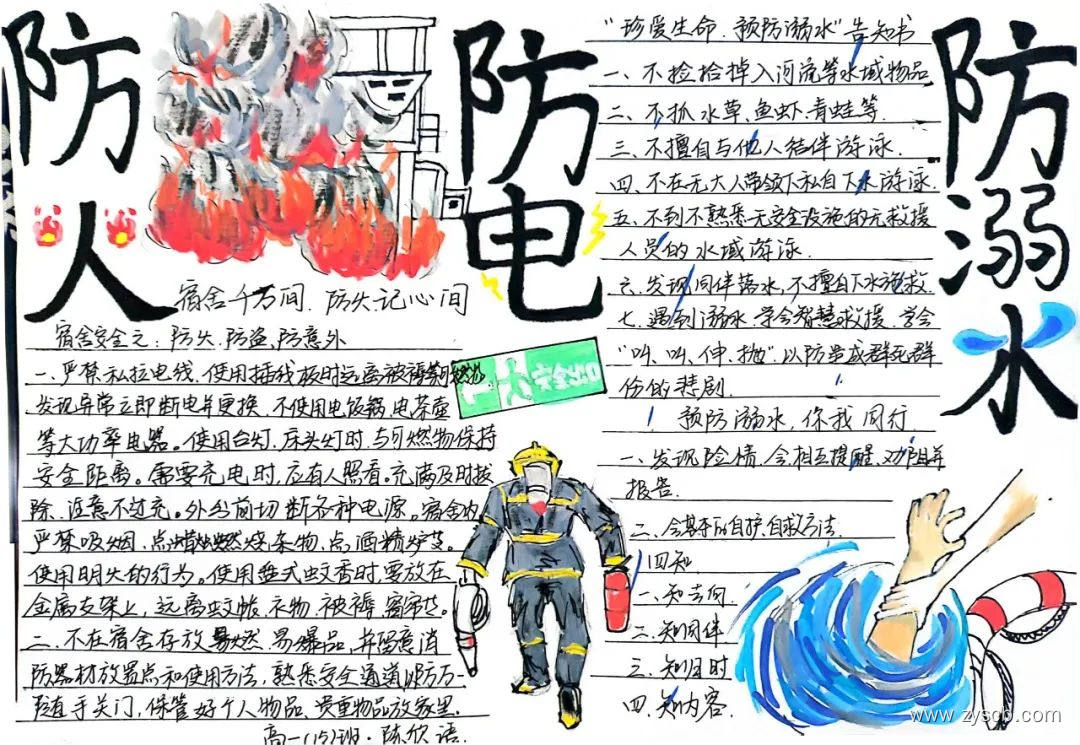 防火
宿舍千万间、防火记心间
宿舍安全之：防火、防盗、防意外
一、严禁私拉电线、使用插线板时远离被褥等易燃物
发现异常立即断电并更换、不使用电饭锅、电茶壶
等大功率电器。使用台灯、床头灯时、与可燃物保持
安全距离。需要充电时、应有人照看。充满及时拔
除、注意不过充。外出前切断各种电源。宿舍内
严禁吸烟、点蜡燃烧杂物、点酒精炉等
使用明火的行为。使用盘式蚊香时、要放在
金属支架上，远离蚊帐、衣物、被褥、窗帘等。
二、不在宿舍存放易燃易爆品、并留意消
防器材放置点和使用方法，熟悉安全通道以防万一
随手关门，保管好个人物品、贵重物品放家里.
高一(15)班·陈欣语.
防电
安全出口
"珍爱生命、预防溺水"告知书
一、不捡拾掉入河流等水域物品
二、不抓水草、鱼虾、青蛙等.
三、不擅自与他人结伴游泳.
四、不在无大人带领下私自下水游泳.
五、不到不熟悉无安全设施的无救援
人员的水域游泳.
六、发现同伴落水，不擅自下水施救.
七、遇到溺水、学会智慧救援、学会
"叫、叫、伸、抛"以防造成群死群
伤的悲剧
预防溺水，你我同行
一、发现险情、会相互提醒、劝阻并
报告.
二、会基本的自护、自救方法
四知
一、知去向
二、知同伴
三、知归时
四、知内容
防溺水
www.zyscb.com